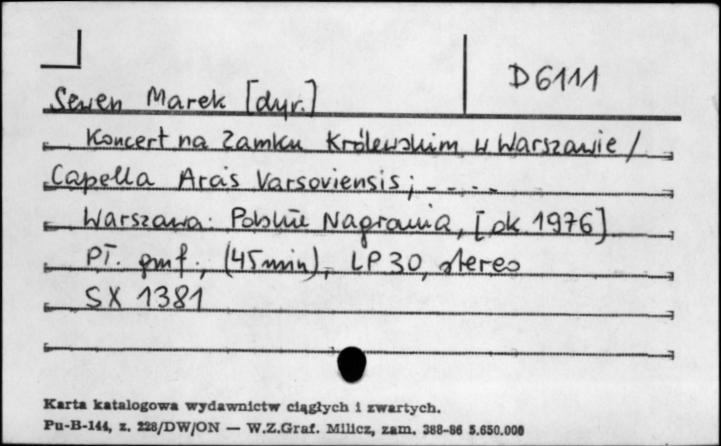 D 6111
Sewen Marek [dyr.]
Koncert na Zamku Królewskim w Warszawie /
Capella Arcis Varsoviensis ; - - - -
Warszawa : Polskie Nagrania, [ok 1976]
Pł. gmf., (45 min), LP 30, stereo
SX 1381
Karta katalogowa wydawnictw ciągłych i zwartych.
Pu-B-144, z. 228/DW/ON — W.Z.Graf. Milicz, zam. 388-86 5.650.000